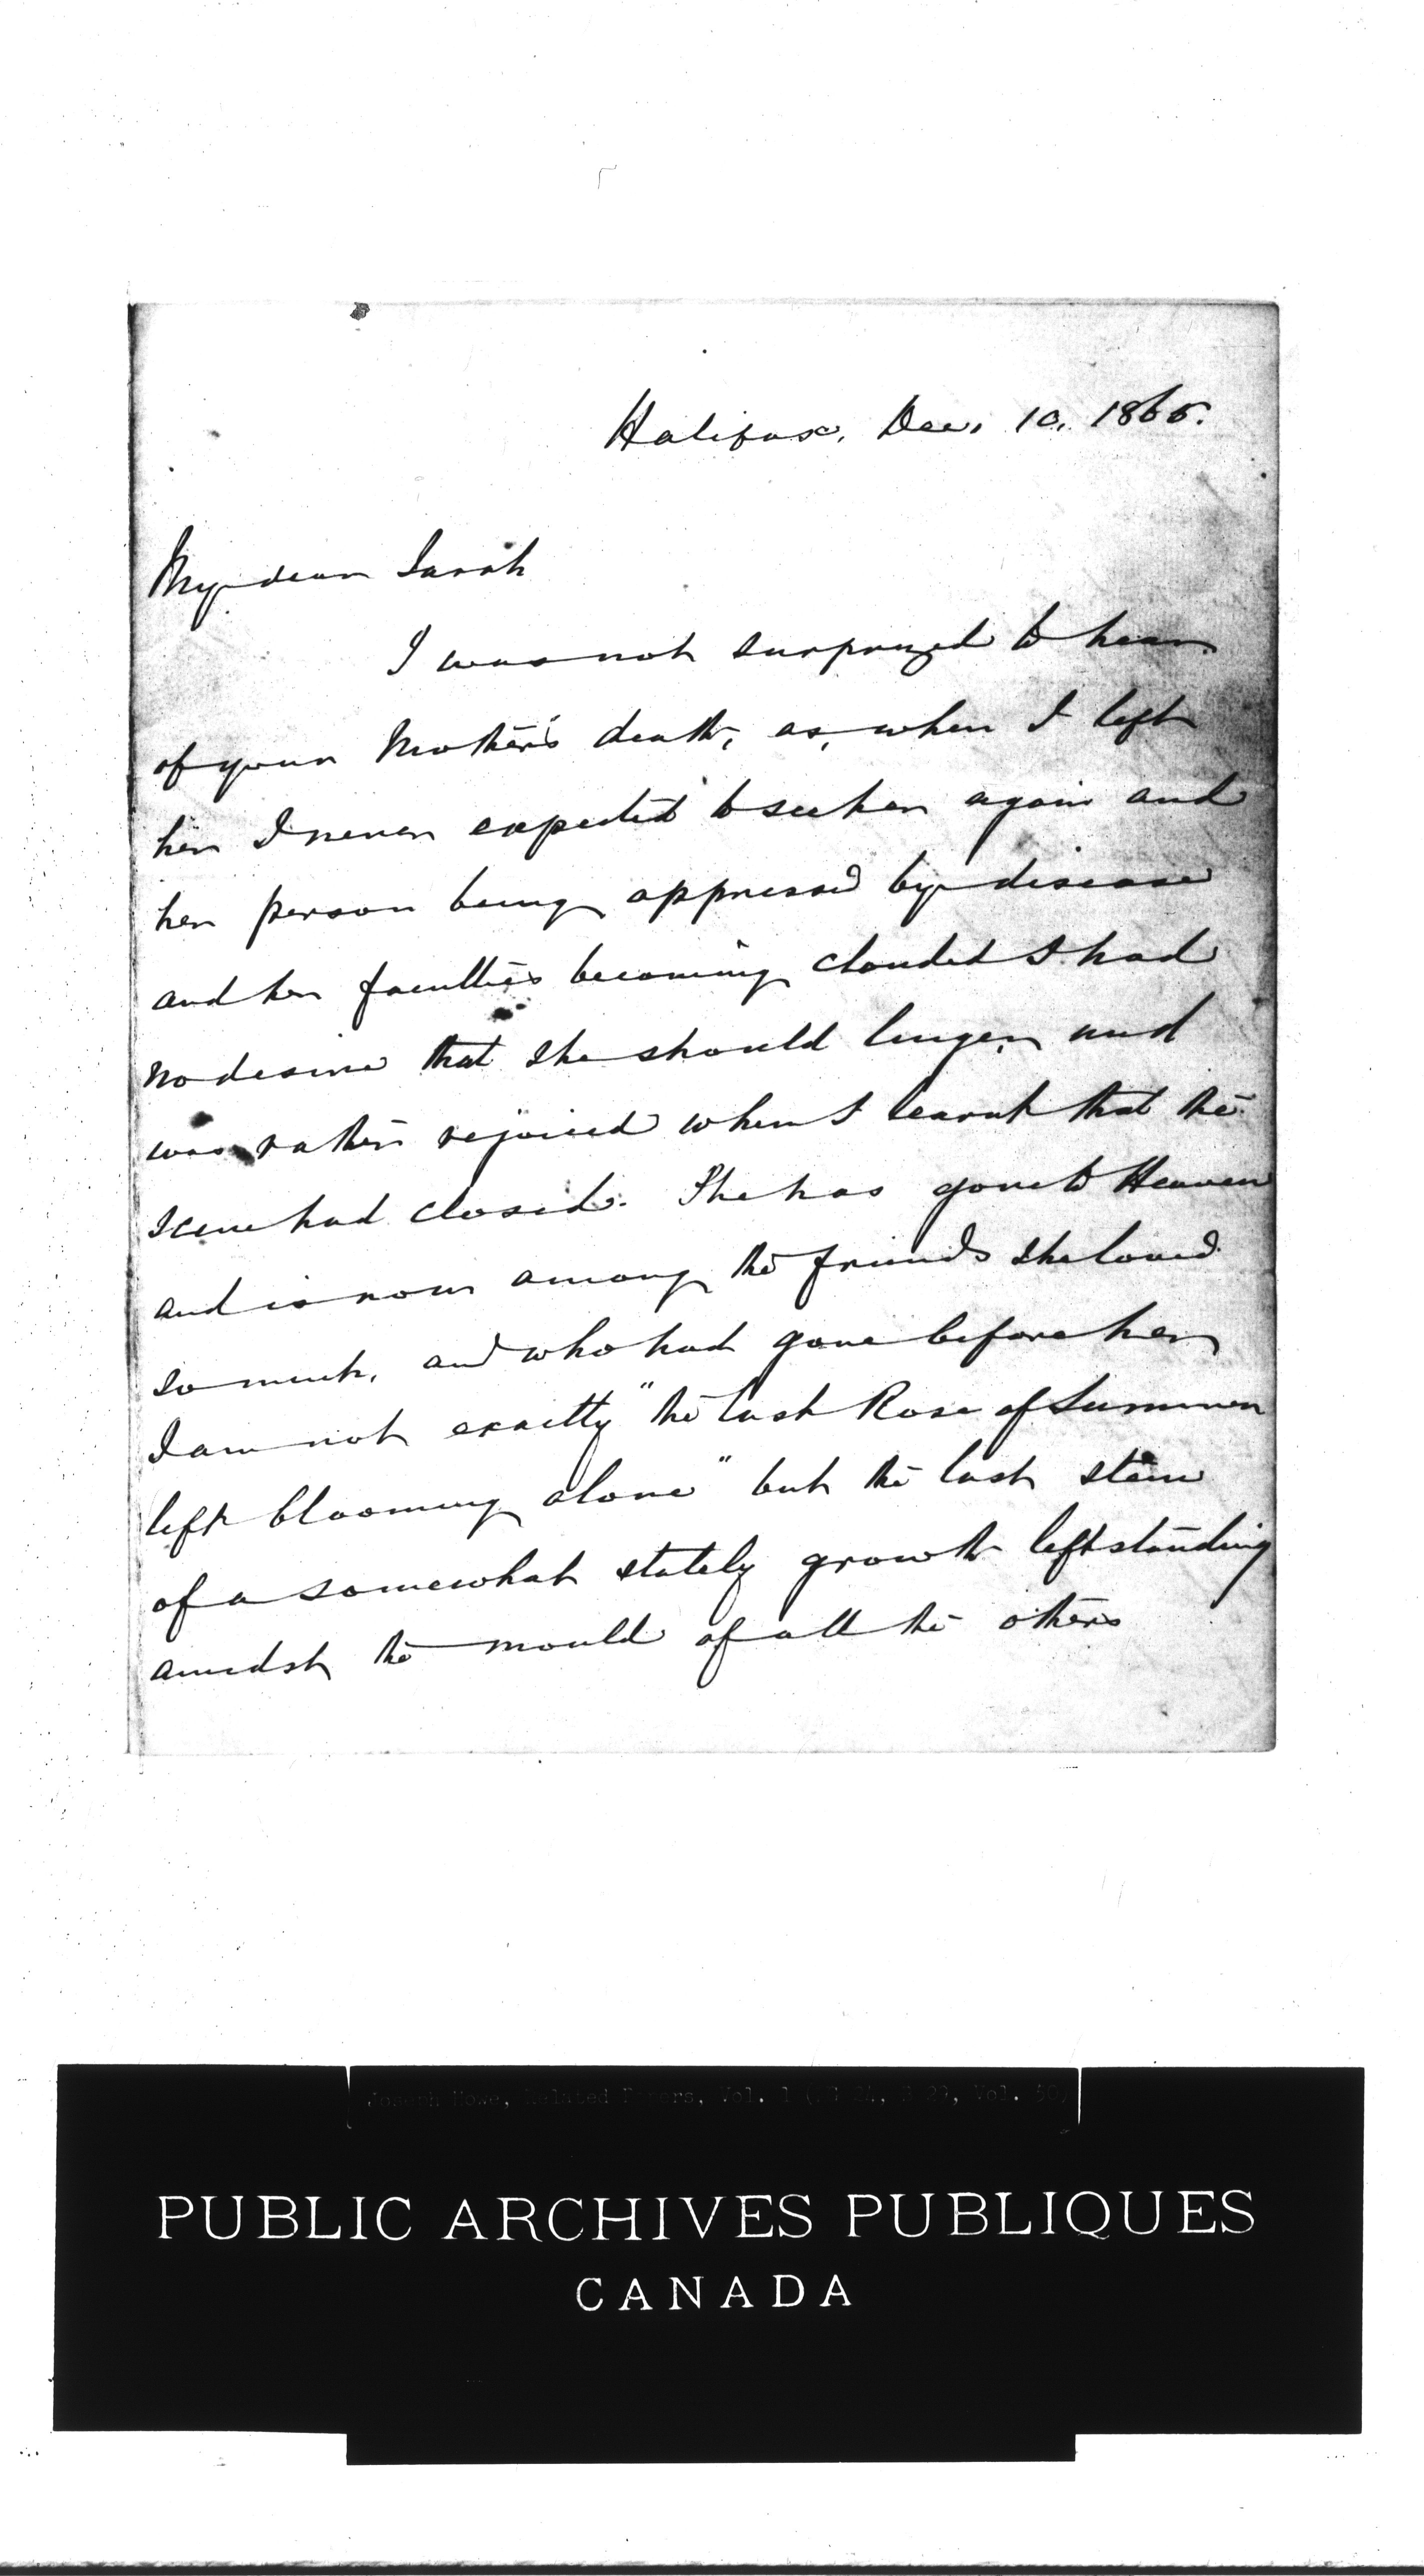 Halifax, Dec. 10, 1865.
My dear Sarah
I was not surprized to hear
of your Mother's death, as, when I left
her I never expected to see her again and
her person being oppressed by disease
and her faculties becoming clouded I had
no desire that she should linger, and
was rather rejoiced when I learnt that the
scene had closed. She has gone to Heaven
and is now among the friends she loved
so much, and who had gone before her
I am not exactly "the last Rose of Summer
left blooming alone" but the last stem
of a somewhat stately growth left standing
amidst the mould of all the others
Joseph Howe, Related Papers, Vol. 1 (MG 24, B 29, Vol. 50)
PUBLIC ARCHIVES PUBLIQUES
CANADA